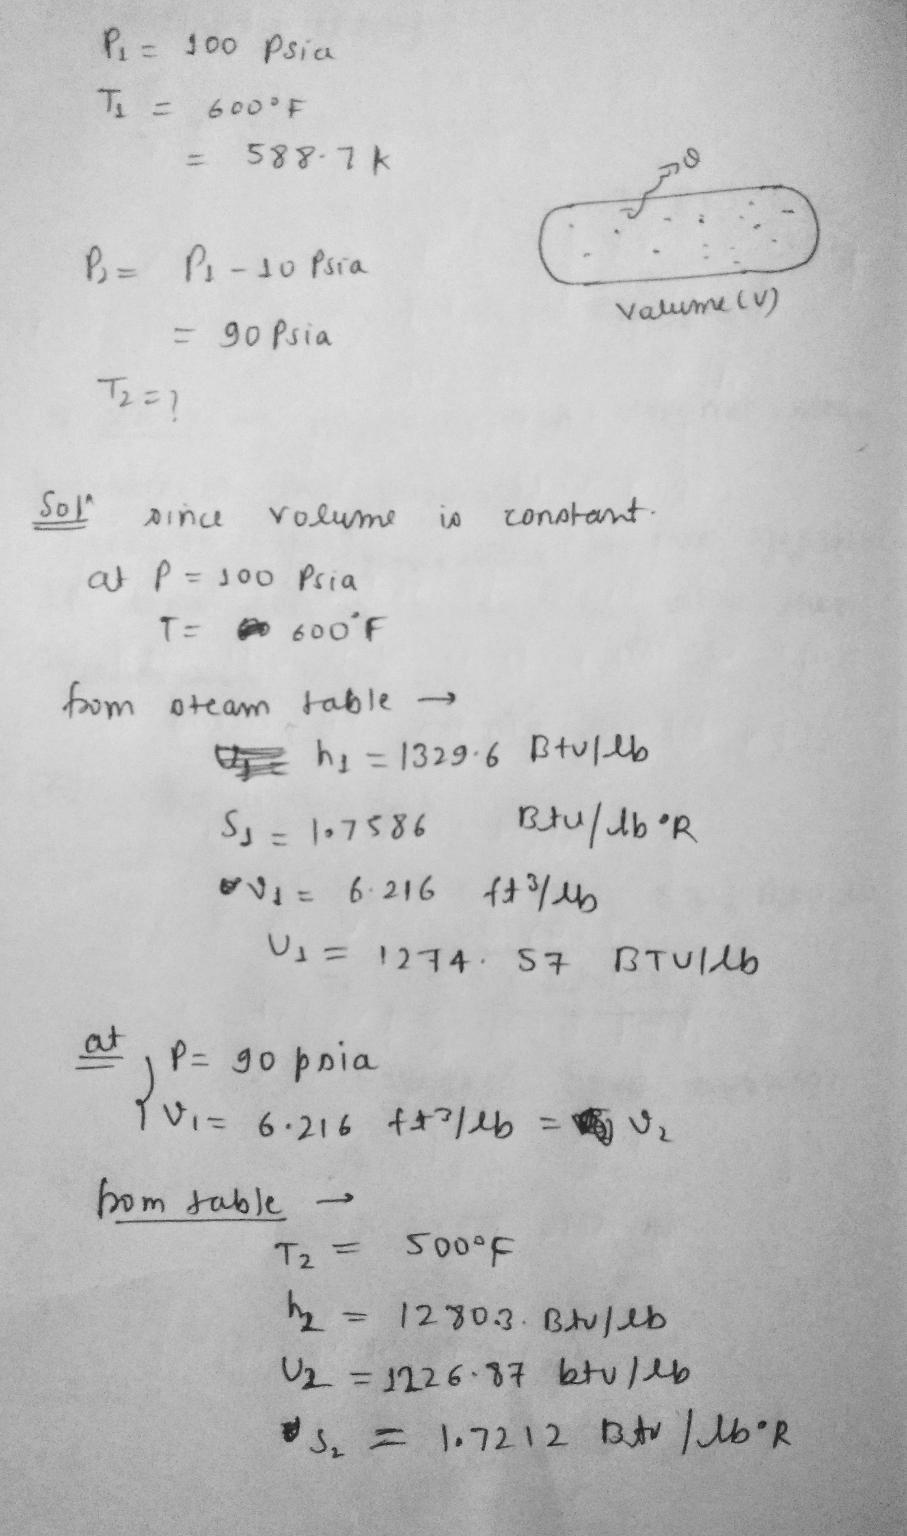 P₁ = 100 Psia
T₁ = 600°F
= 588.7 k
P₂ = P₁ - 10 Psia
= 90 Psia
T₂ = ?
Volume (V)
Solⁿ since volume is constant.
at P = 100 Psia
T = 600°F
from steam table →
h₁ = 1329.6 Btu/lb
S₁ = 1.7586 Btu/lb°R
v₁ = 6.216 ft³/lb
U₁ = 1274.57 BTU/lb
at P = 90 psia
v₁ = 6.216 ft³/lb = v₂
from table →
T₂ = 500°F
h₂ = 1280.3. Btu/lb
U₂ = 1226.87 btu/lb
S₂ = 1.7212 Btu/lb°R